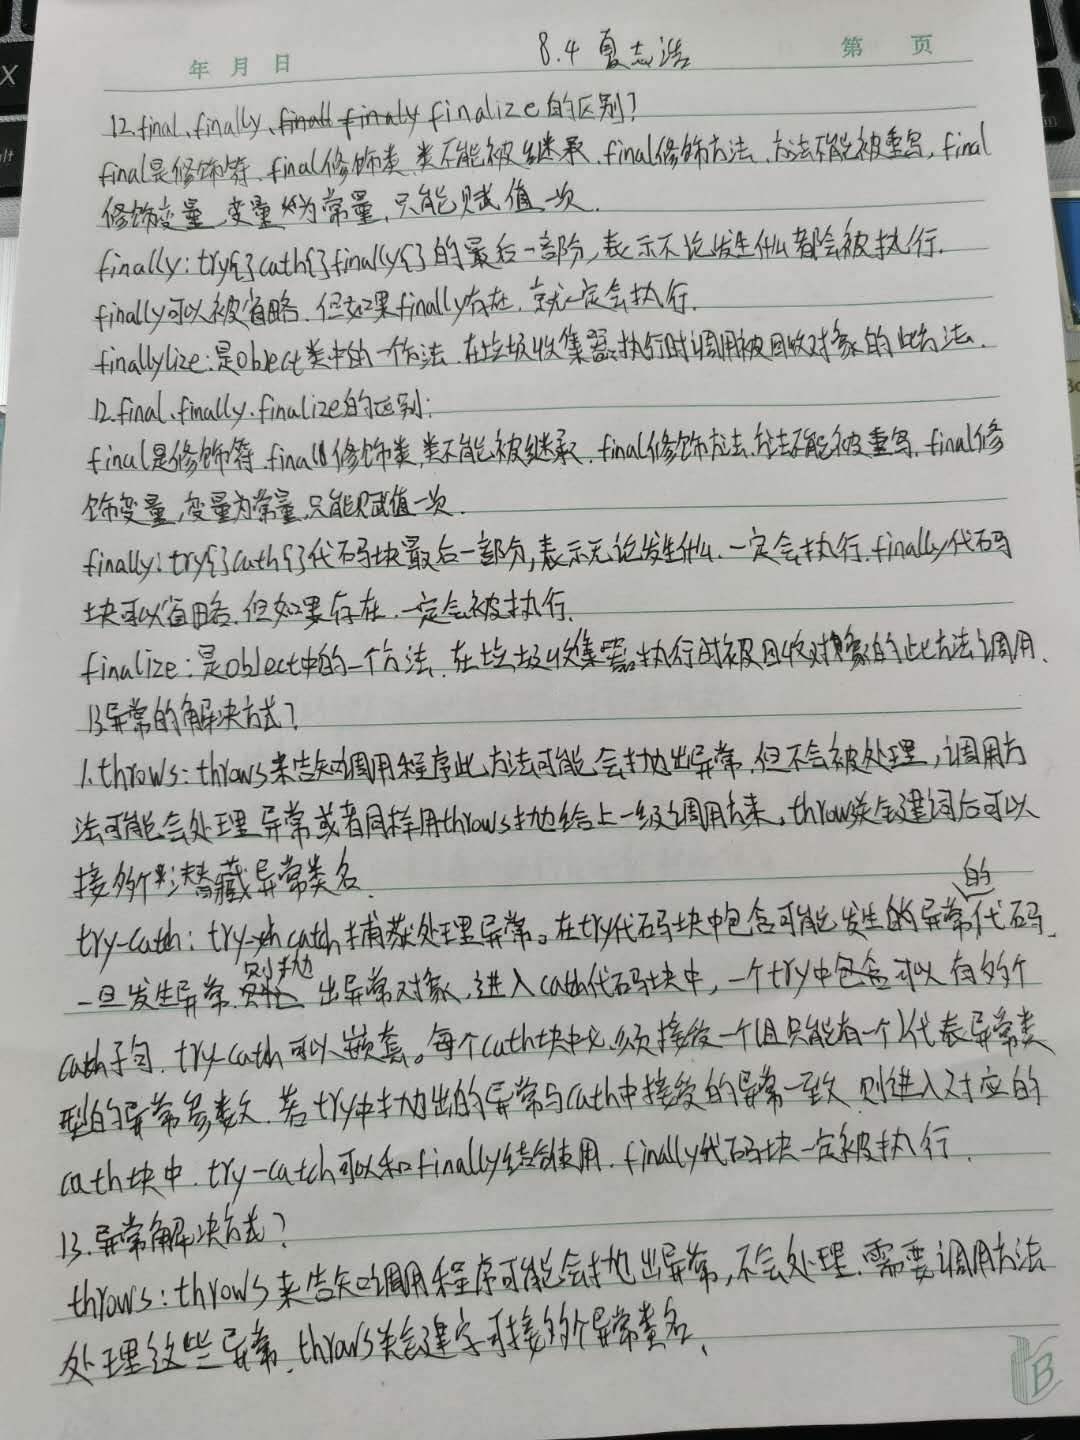 8.4 夏志浩
年 月 日 第 页
12.final、finally、finall finaly finalize的区别?
final是修饰符.final修饰类,类不能被继承.final修饰方法,方法不能被重写,final
修饰变量,变量为常量,只能赋值一次.
finally:try{}cath{}finally{}的最后一部分,表示不论发生什么都会被执行.
finally可以被省略,但如果finally存在,就一定会执行.
finallylize:是object类中的一个方法.在垃圾收集器执行时调用被回收对象的此方法.
12.final、finally、finalize的区别:
final是修饰符.final修饰类,类不能被继承.final修饰方法,方法不能被重写.final修
饰变量,变量为常量,只能赋值一次.
finally:try{}cath{}代码块最后一部分,表示无论发生什么.一定会执行.finally代码
块可以省略.但如果存在.一定会被执行.
finalize:是object中的一个方法.在垃圾收集器执行时被回收对象的此方法调用.
13异常的解决方式?
1.throws:throws来告知调用程序此方法可能会抛出异常,但不会被处理,调用方
法可能会处理异常或者同样用throws抛给上一级调用方来。throws关建词后可以
接多个潜藏异常类名.
try-cath:try-cath捕获处理异常。在try代码块中包含可能发生的异常的代码.
一旦发生异常.则抛出异常对象,进入cath代码块中,一个try中可以有多个
cath子句.try-cath可以嵌套。每个cath块中必须接受一个(且只能有一个)代表异常类
型的异常参数.若try中抛出的异常与cath中接受的异常一致.则进入对应的
cath块中.try-catch可以和finally结合使用.finally代码块一定被执行.
13.异常解决方式?
throws:throws来告知调用程序可能会抛出异常,不会处理.需要调用方法
处理这些异常.throws关建字可接多个异常类名.
B